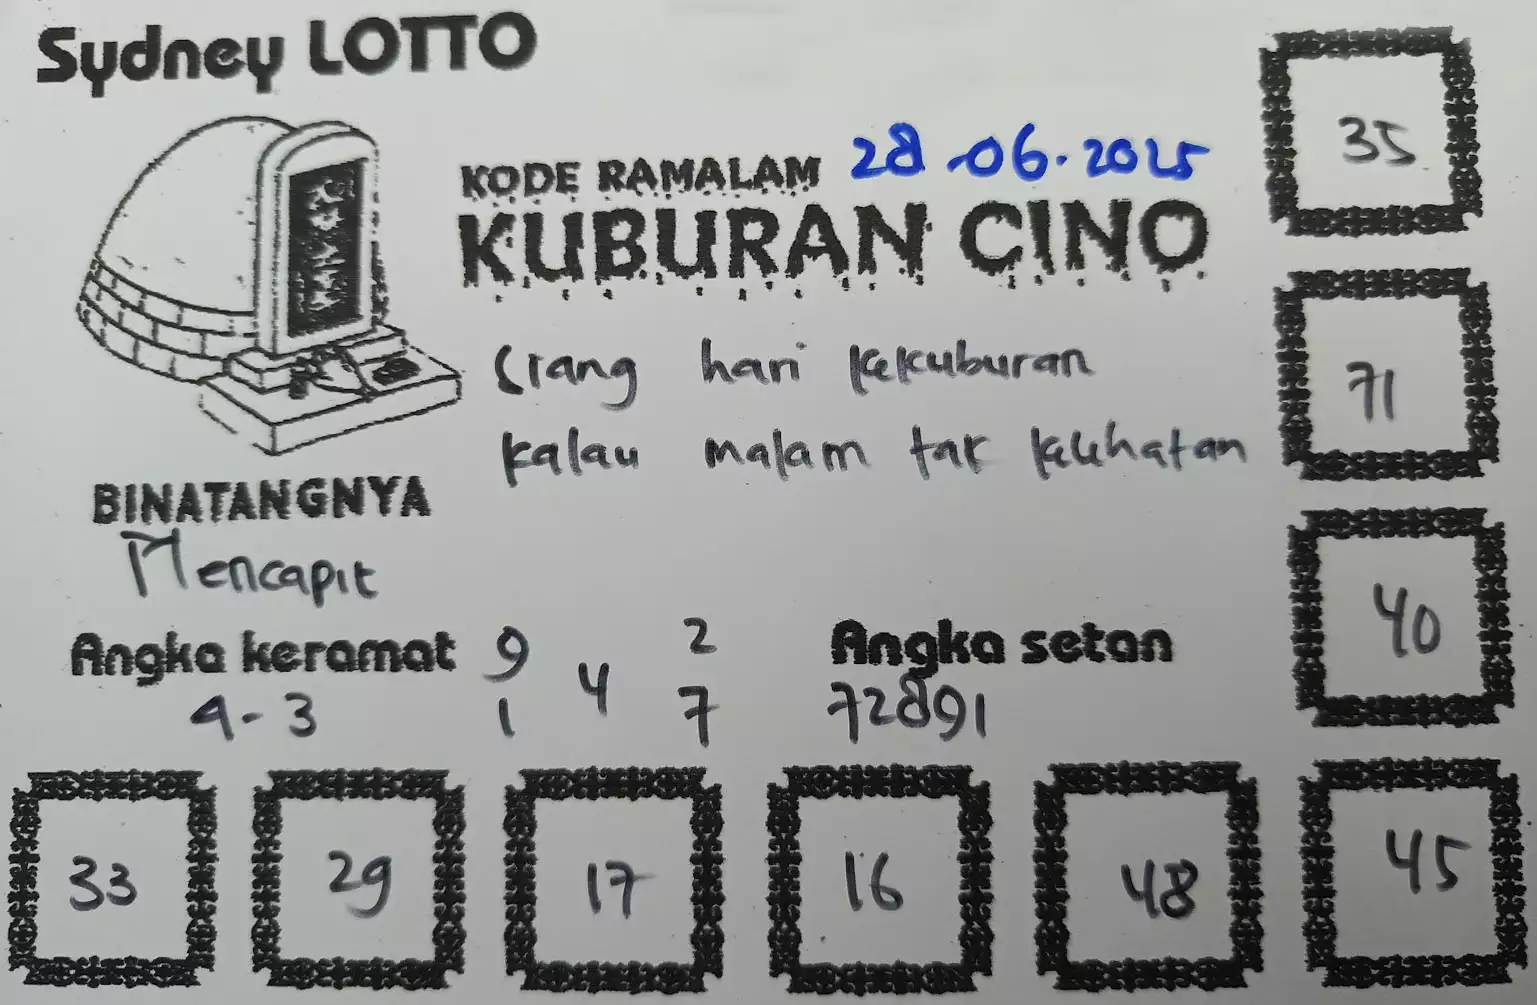 Sydney LOTTO
KODE RAMALAM 28-06-2025
KUBURAN CINO
Siang hari kekuburan
kalau malam tak kelihatan
BINATANGNYA
Mencapit
Angka keramat
4-3
9 2
4
1 7
Angka setan
72891
35
71
40
33 29 17 16 48 45